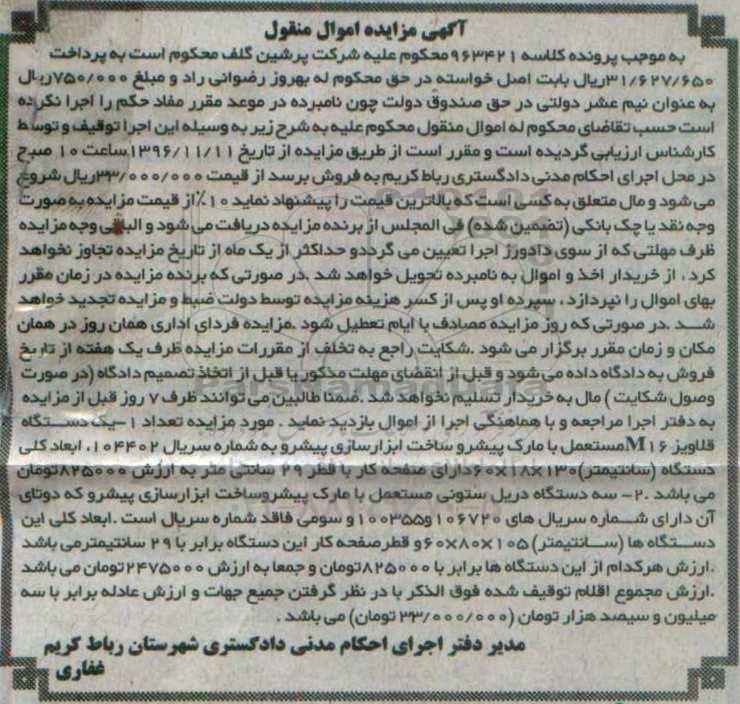 آگهی مزایده اموال منقول
به موجب پرونده کلاسه ۹۶۳۴۲۱محکوم علیه شرکت پرشین گلف محکوم است به پرداخت
۳۱/۶۲۷/۶۵۰ریال بابت اصل خواسته در حق محکوم له بهروز رضوانی راد و مبلغ ۷۵۰/۰۰۰ریال
به عنوان نیم عشر دولتی در حق صندوق دولت چون نامبرده در موعد مقرر مفاد حکم را اجرا نکرده
است حسب تقاضای محکوم له اموال منقول محکوم علیه به شرح زیر به وسیله این اجرا توقیف و توسط
کارشناس ارزیابی گردیده است و مقرر است از طریق مزایده از تاریخ ۱۳۹۶/۱۱/۱۱ساعت ۱۰ صبح
در محل اجرای احکام مدنی دادگستری رباط کریم به فروش برسد از قیمت ۳۳/۰۰۰/۰۰۰ریال شروع
می شود و مال متعلق به کسی است که بالاترین قیمت را پیشنهاد نماید ۱۰٪از قیمت مزایده به صورت
وجه نقد یا چک بانکی (تضمین شده) فی المجلس از برنده مزایده دریافت می شود و الباقی وجه مزایده
ظرف مهلتی که از سوی دادورز اجرا تعیین می گرددو حداکثر از یک ماه از تاریخ مزایده تجاوز نخواهد
کرد ، از خریدار اخذ و اموال به نامبرده تحویل خواهد شد .در صورتی که برنده مزایده در زمان مقرر
بهای اموال را نپردازد ، سپرده او پس از کسر هزینه مزایده توسط دولت ضبط و مزایده تجدید خواهد
شد .در صورتی که روز مزایده مصادف با ایام تعطیل شود .مزایده فردای اداری همان روز در همان
مکان و زمان مقرر برگزار می شود .شکایت راجع به تخلف از مقررات مزایده ظرف یک هفته از تاریخ
فروش به دادگاه داده می شود و قبل از انقضای مهلت مذکور یا قبل از اتخاذ تصمیم دادگاه (در صورت
وصول شکایت ) مال به خریدار تسلیم نخواهد شد .ضمنا طالبین می توانند ظرف ۷ روز قبل از مزایده
به دفتر اجرا مراجعه و با هماهنگی اجرا از اموال بازدید نماید . مورد مزایده تعداد ۱-یک دستگاه
قلاویز M۱۶مستعمل با مارک پیشرو ساخت ابزارسازی پیشرو به شماره سریال ۱۰۴۴۰۲، ابعاد کلی
دستگاه (سانتیمتر)۱۳۰×۱۸×۶۰دارای صفحه کار با قطر ۲۹ سانتی متر به ارزش ۸۲۵۰۰۰تومان
می باشد .۲- سه دستگاه دریل ستونی مستعمل با مارک پیشروساخت ابزارسازی پیشرو که دوتای
آن دارای شماره سریال های ۱۰۶۷۲۰ و۱۰۰۳۵۵ و سومی فاقد شماره سریال است .ابعاد کلی این
دستگاه ها (سانتیمتر) ۱۰۵×۸۰×۶۰و قطرصفحه کار این دستگاه برابر با ۲۹ سانتیمترمی باشد
.ارزش هرکدام از این دستگاه ها برابر با ۸۲۵۰۰۰تومان و جمعا به ارزش ۲۴۷۵۰۰۰تومان می باشد
.ارزش مجموع اقلام توقیف شده فوق الذکر با در نظر گرفتن جمیع جهات و ارزش عادله برابر با سه
میلیون و سیصد هزار تومان (۳۳/۰۰۰/۰۰۰ تومان) می باشد .
مدیر دفتر اجرای احکام مدنی دادگستری شهرستان رباط کریم
غفاری